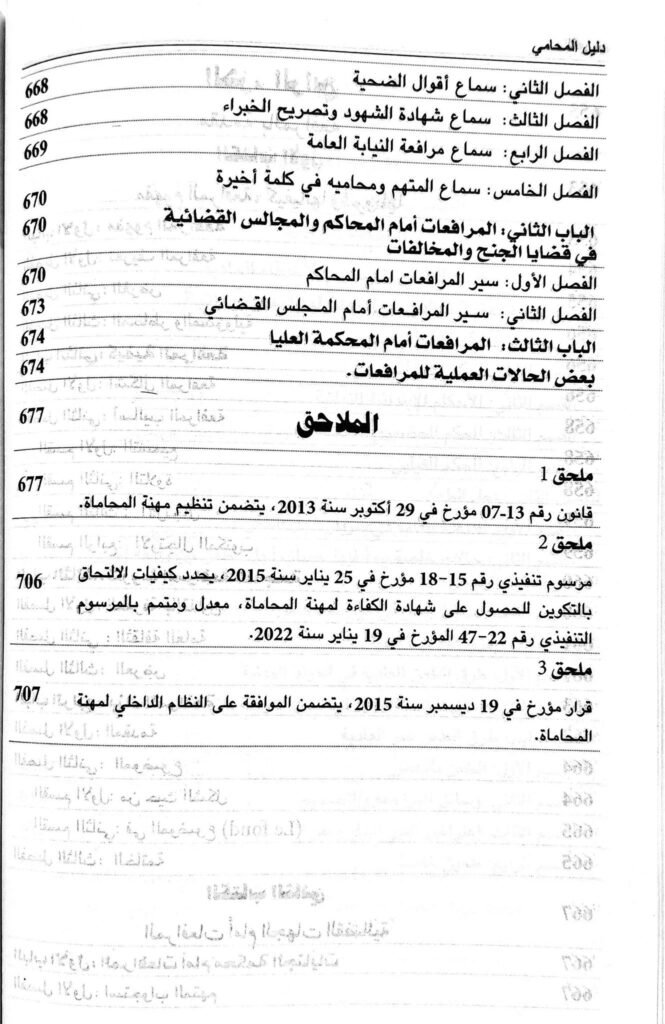 دليل المحامي
الفصل الثاني: سماع أقوال الضحية 668
الفصل الثالث: سماع شهادة الشهود وتصريح الخبراء 668
الفصل الرابع: سماع مرافعة النيابة العامة 669
الفصل الخامس: سماع المتهم ومحاميه في كلمة أخيرة 670
الباب الثاني: المرافعات أمام المحاكم والمجالس القضائية 670
في قضايا الجنح والمخالفات
الفصل الأول: سير المرافعات امام المحاكم 670
الفصل الثاني: سير المرافعات أمام المجلس القضائي 673
الباب الثالث: المرافعات أمام المحكمة العليا 674
بعض الحالات العملية للمرافعات. 674
الملاحق 677
ملحق 1
قانون رقم 13-07 مؤرخ في 29 أكتوبر سنة 2013، يتضمن تنظيم مهنة المحاماة. 677
ملحق 2
مرسوم تنفيذي رقم 15-18 مؤرخ في 25 يناير سنة 2015، يحدد كيفيات الالتحاق 706
بالتكوين للحصول على شهادة الكفاءة لمهنة المحاماة، معدل ومتمم بالمرسوم
التنفيذي رقم 22-47 المؤرخ في 19 يناير سنة 2022.
ملحق 3
قرار مؤرخ في 19 ديسمبر سنة 2015، يتضمن الموافقة على النظام الداخلي لمهنة 707
المحاماة.